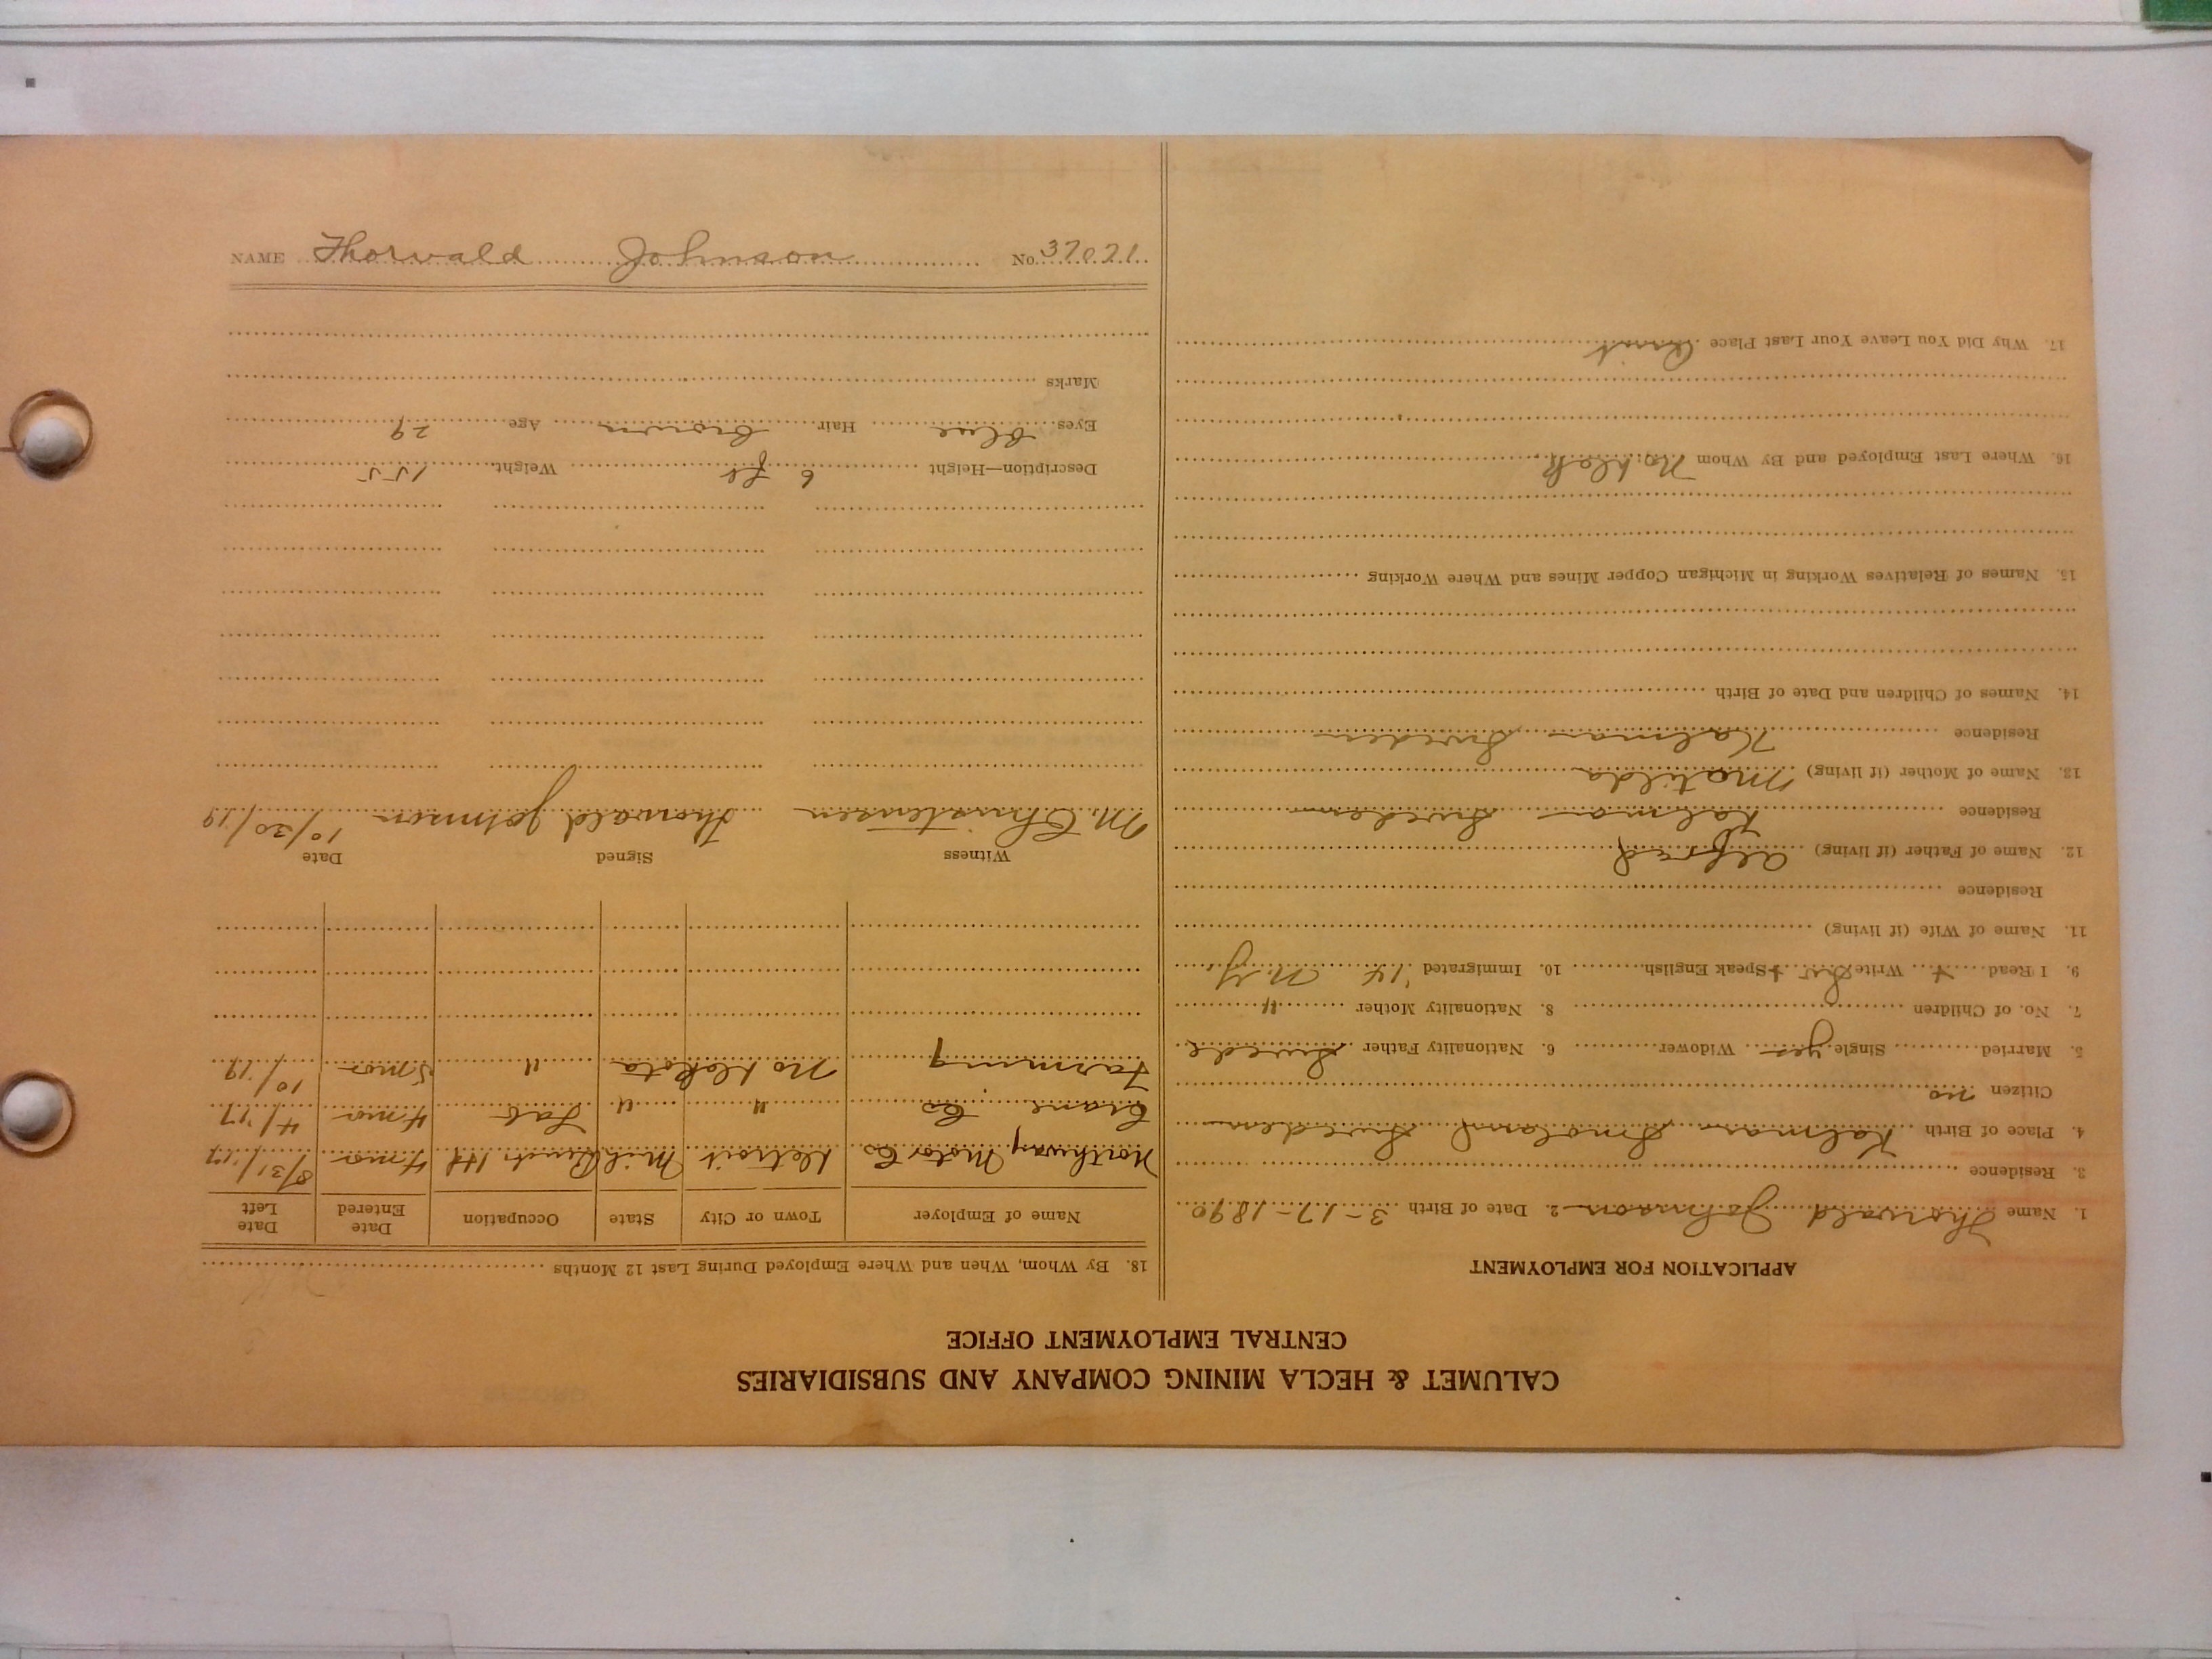 CALUMET & HECLA MINING COMPANY AND SUBSIDIARIES
CENTRAL EMPLOYMENT OFFICE
APPLICATION FOR EMPLOYMENT
1. Name Thorwald Johnson 2. Date of Birth 3-17-1890
3. Residence
4. Place of Birth Kalmar Smoland Sweden
Citizen no
5. Married Single yes Widower 6. Nationality Father Swede
7. No. of Children 8. Nationality Mother "
9. I Read + Write Sw + Speak English 10. Immigrated '14 N.Y.
11. Name of Wife (if living)
Residence
12. Name of Father (if living) Alfred
Residence Kalmar Sweden
13. Name of Mother (if living) Matilda
Residence Kalmar Sweden
14. Names of Children and Date of Birth
15. Names of Relatives Working in Michigan Copper Mines and Where Working
16. Where Last Employed and By Whom No. Dak
17. Why Did You Leave Your Last Place Quit
18. By Whom, When and Where Employed During Last 12 Months
Name of Employer Town or City State Occupation Date Entered Date Left
Northway Motor Co Detroit Mich 4 mos 8/31/17
Crane Co " " Lab 4 mos 4/17
Farming No Dakota " 5 mos 10/19
Witness Signed Date
M. Christensen Thorwald Johnson 10/30/19
Description—Height 6 ft Weight 155
Eyes Blue Hair Brown Age 29
Marks
NAME Thorwald Johnson No. 37021